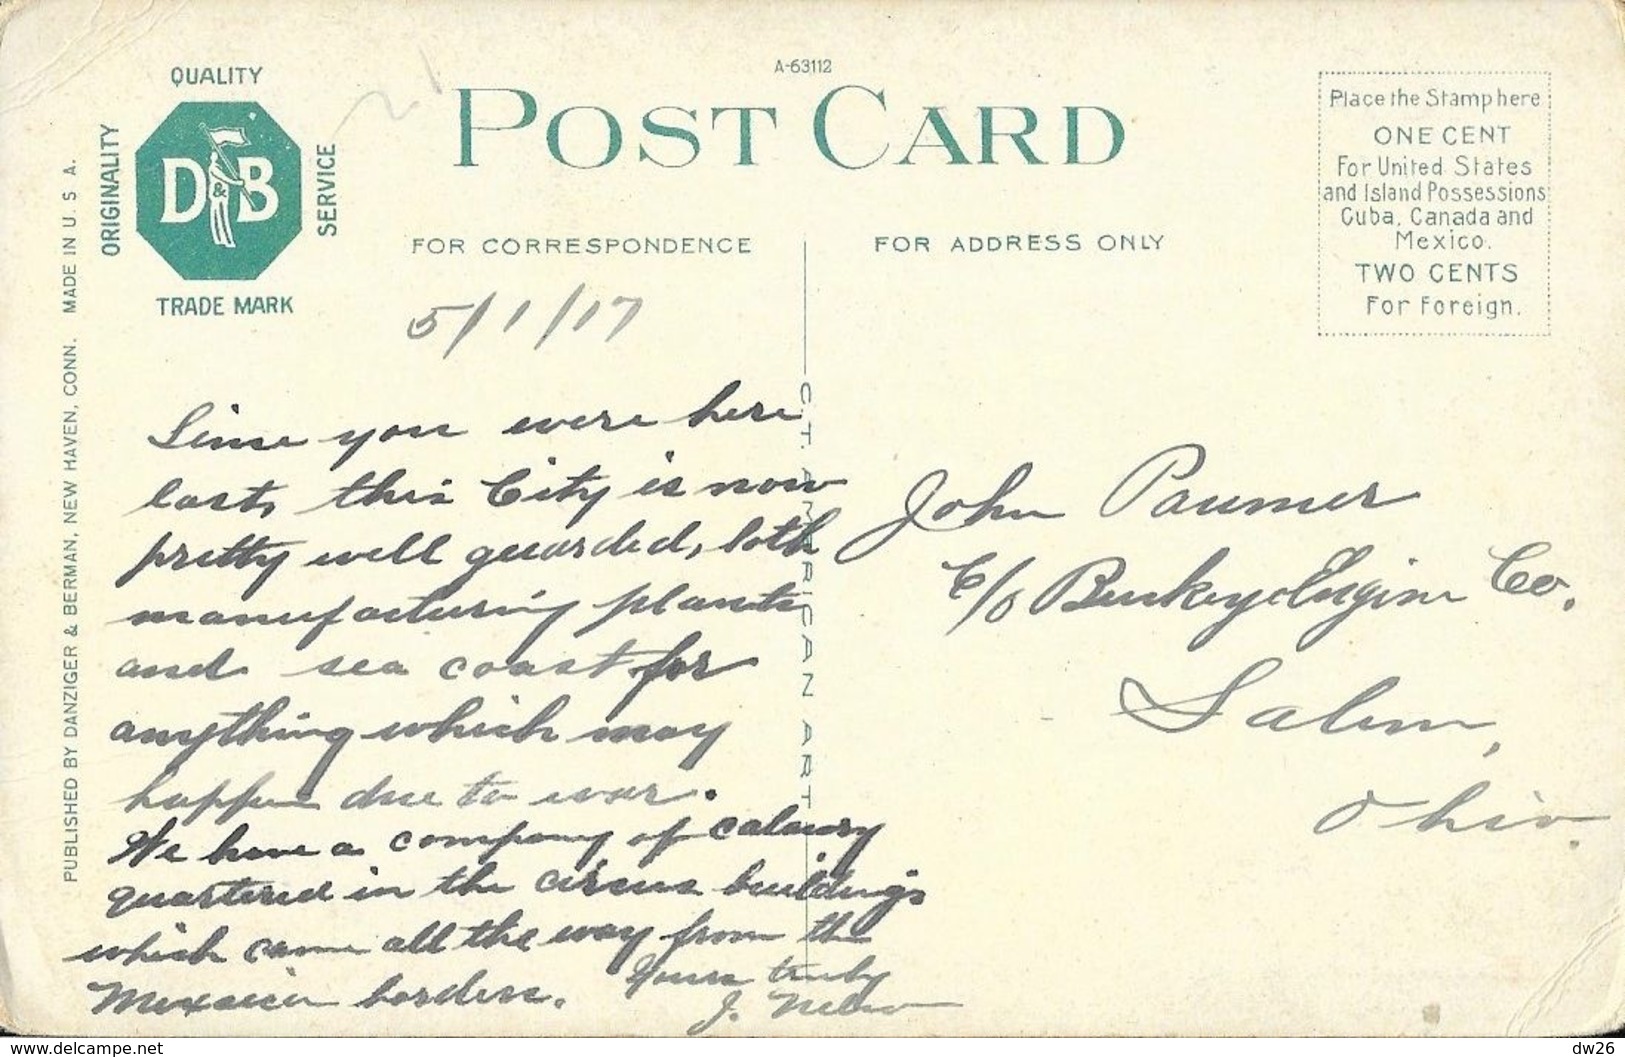 A-63112
QUALITY
ORIGINALITY
D&B
SERVICE
TRADE MARK
POST CARD
Place the Stamp here
ONE CENT
For United States
and Island Possessions
Cuba, Canada and
Mexico.
TWO CENTS
For Foreign.
FOR CORRESPONDENCE
FOR ADDRESS ONLY
PUBLISHED BY DANZIGER & BERMAN, NEW HAVEN, CONN. MADE IN U. S A.
C. T. AMERICAN ART
5/1/17
Since you were here
last, this City is now
pretty well guarded, both
manufacturing plants
and sea coast for
anything which may
happen due to war.
We have a company of calavry
quartered in the circus buildings
which came all the way from the
Mexican borders. Yours truly
J. Nelson
John Paumer
C/o Buckeye Engine Co.
Salem,
Ohio.
dw26
www.delcampe.net